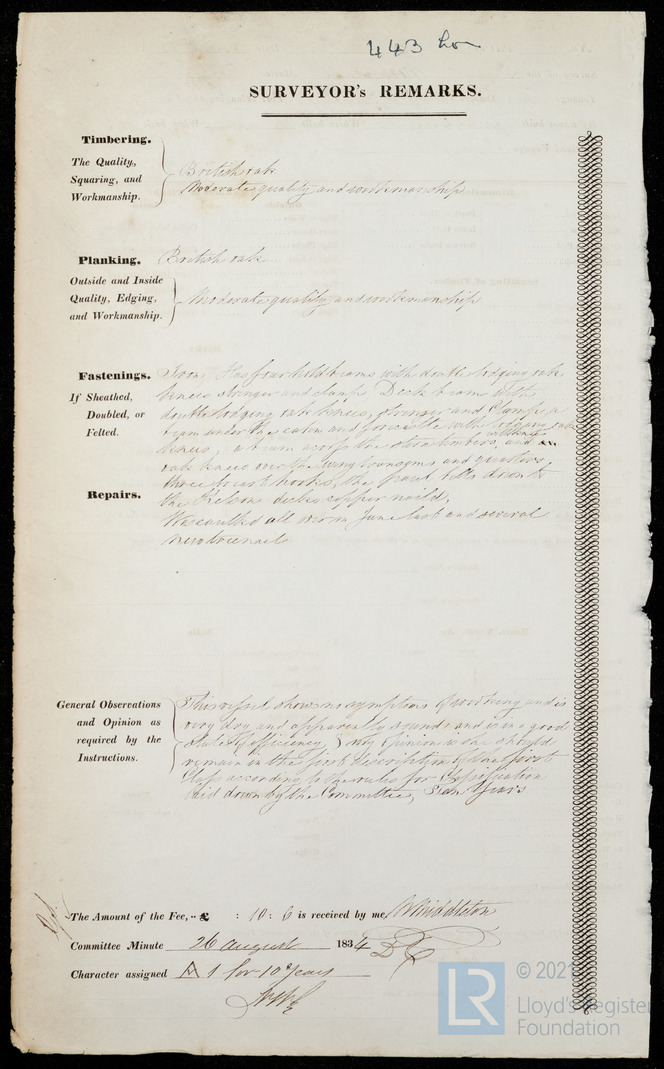 443 Lon
SURVEYOR's REMARKS.
Timbering.
The Quality,
Squaring, and
Workmanship.
British oak
Moderate quality and workmanship
Planking. British oak
Outside and Inside
Quality, Edging,
and Workmanship.
Moderate quality and workmanship
Fastenings.
If Sheathed,
Doubled, or
Felted.
Iron, Has four hold beams with double lodging oak
knees stringer and clamp Deck beams with
double lodging oak knees, stringer and Clamp, a
beam under the and with lodging oak
knees, a beam across the stern timbers, and an
oak knees over the wing transoms and quarters,
three breast hooks, the bolts down to
the Kelson decks copper nail'd,
Repairs.
Was caulked all over in June last and several
new treenails
General Observations
and Opinion as
required by the
Instructions.
This vessel shows no symptoms of working and is
very dry and apparently sound and is in a good
State of efficiency, my opinion is she should
remain in the first description of the first
Class according to the rules for Classification
laid down by the Committee, Years
The Amount of the Fee, -- £ : 10 : 6 is received by me, Middleton
Committee Minute 26 August 1834
Character assigned A 1 for 10 Years
© 202
Lloyd's Register
Foundation
LR